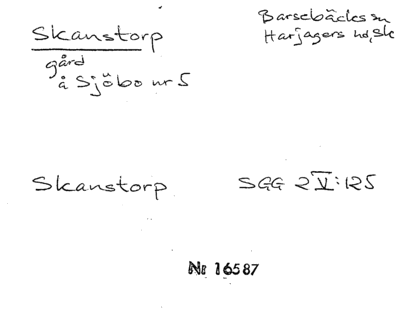 Skanstorp
Barsebäcks sn
Harjagers hd, Sk
gård
å Sjöbo nr 5
Skanstorp
SGG 2 V:125
Nr 16587